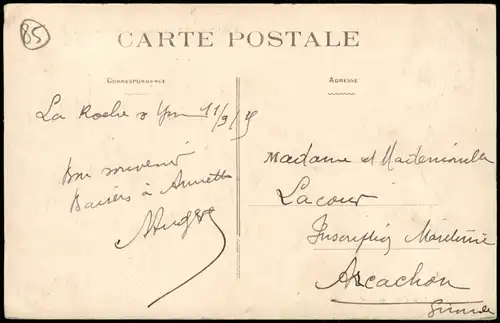 85
CARTE POSTALE
CORRESPONDANCE
ADRESSE
La Roche s Yon 11/9/25
Bon souvenir
Baisers à Annette
Madame et Mademoiselle
Lacour
Inscription Maritime
Arcachon
Gironde